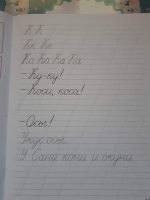 К К
Кк Кк
Ка Ка Ка Ка
- Ку-ку!
- Коси, коса!
- Осы!
Укус осы.
У Сани кони и окуни.